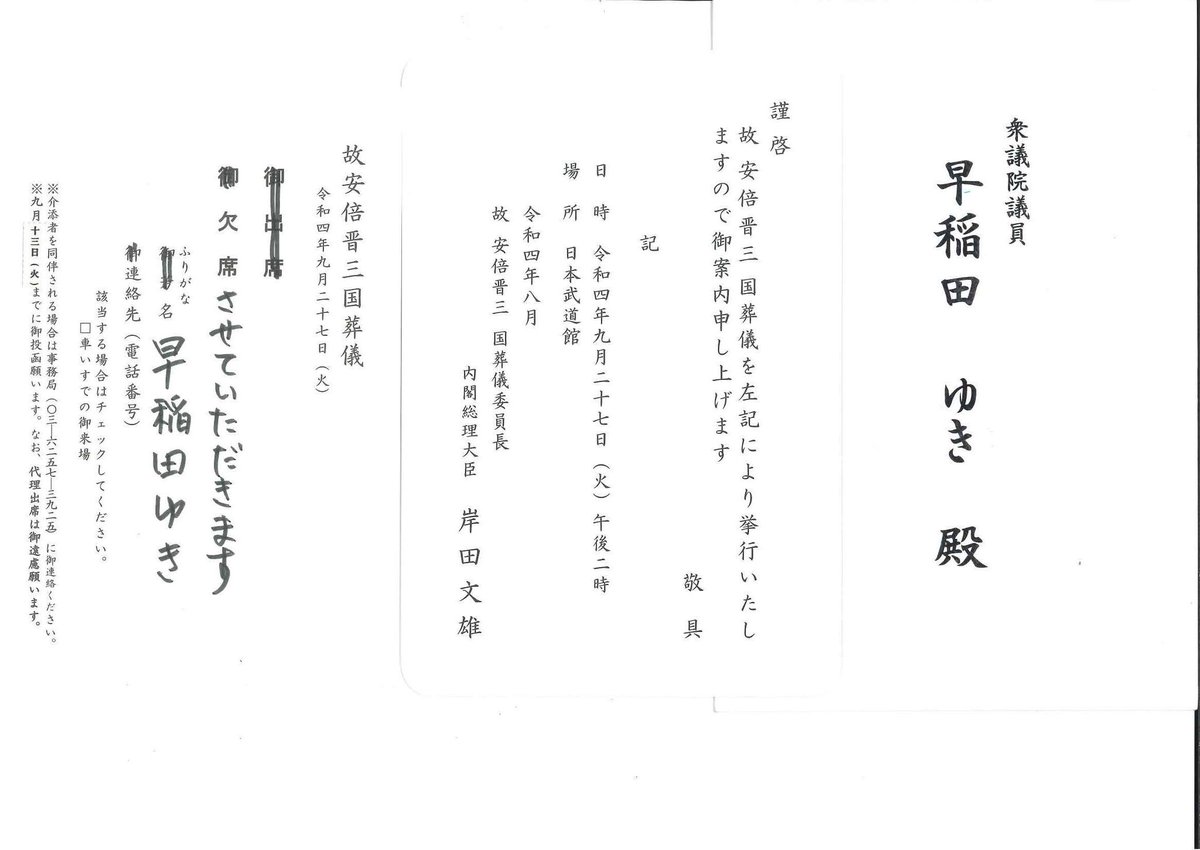 衆議院議員
早稲田 ゆき 殿
謹啓
故 安倍晋三 国葬儀を左記により挙行いたし
ますので御案内申し上げます
敬具
記
日時 令和四年九月二十七日（火）午後二時
場所 日本武道館
令和四年八月
故 安倍晋三 国葬儀委員長
内閣総理大臣 岸田文雄
故安倍晋三国葬儀
令和四年九月二十七日（火）
御出席
御欠席させていただきます
ふりがな
御芳名 早稲田ゆき
御連絡先（電話番号）
該当する場合はチェックしてください。
□車いすでの御来場
※介添者を同伴される場合は事務局（〇三―六二五七―三九二五）に御連絡ください。
※九月十三日（火）までに御投函願います。なお、代理出席は御遠慮願います。